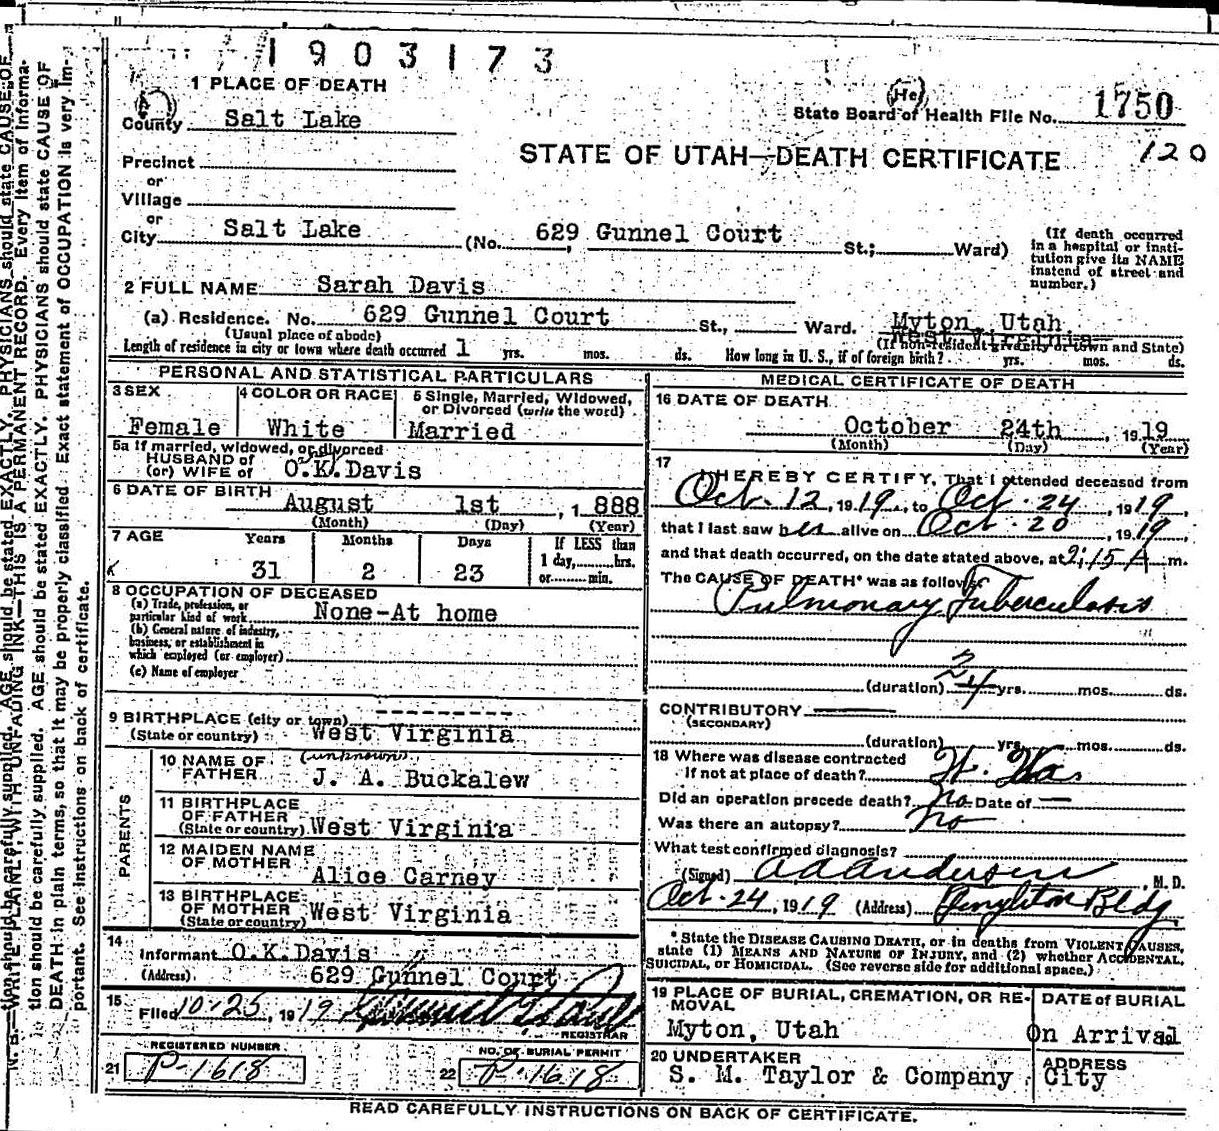 1903173
1 PLACE OF DEATH
County Salt Lake
(He)
State Board of Health File No. 1750
STATE OF UTAH—DEATH CERTIFICATE
120
Precinct
or
Village
or
City Salt Lake (No. 629 Gunnel Court St.; Ward)
(If death occurred in a hospital or insti-
tution give its NAME
instead of street and
number.)
2 FULL NAME Sarah Davis
(a) Residence. No. 629 Gunnel Court St., Ward. Myton, Utah
West Virginia
(Usual place of abode) (If non-resident give city or town and State)
Length of residence in city or town where death occurred 1 yrs. mos. ds. How long in U. S., if of foreign birth? yrs. mos. ds.
PERSONAL AND STATISTICAL PARTICULARS
3 SEX
Female
4 COLOR OR RACE
White
5 Single, Married, Widowed,
or Divorced (write the word)
Married
5a If married, widowed, or divorced
HUSBAND of
(or) WIFE of O.K. Davis
6 DATE OF BIRTH August 1st , 1 888
(Month) (Day) (Year)
7 AGE Years Months Days If LESS than
1 day,........hrs.
or.........min.
31 2 23
8 OCCUPATION OF DECEASED
(a) Trade, profession, or
particular kind of work None-At home
(b) General nature of industry,
business, or establishment in
which employed (or employer)
(c) Name of employer
9 BIRTHPLACE (city or town) ---------
(State or country) West Virginia
PARENTS
10 NAME OF
FATHER (unknown)
J. A. Buckalew
11 BIRTHPLACE
OF FATHER
(State or country) West Virginia
12 MAIDEN NAME
OF MOTHER
Alice Carney
13 BIRTHPLACE
OF MOTHER
(State or country) West Virginia
14
Informant O.K.Davis
(Address) 629 Gunnel Court
15
Filed 10-25, 1919
REGISTRAR
REGISTERED NUMBER
21 P-1618
NO. OF BURIAL PERMIT
22 P-1618
MEDICAL CERTIFICATE OF DEATH
16 DATE OF DEATH
October 24th , 1919
(Month) (Day) (Year)
17
I HEREBY CERTIFY, That I attended deceased from
Oct. 12, 1919., to Oct. 24, 1919
that I last saw her alive on Oct. 20, 1919
and that death occurred, on the date stated above, at 2:15 A m.
The CAUSE OF DEATH* was as follows:
Pulmonary Tuberculosis
2
(duration) yrs. mos. ds.
CONTRIBUTORY
(SECONDARY)
(duration) yrs. mos. ds.
18 Where was disease contracted
if not at place of death? W. Va
Did an operation precede death? no Date of —
Was there an autopsy? no
What test confirmed diagnosis?
(Signed) A D Anderson, M. D.
Oct. 24, 1919 (Address) Bldg
* State the DISEASE CAUSING DEATH, or in deaths from VIOLENT CAUSES,
state (1) MEANS AND NATURE OF INJURY, and (2) whether ACCIDENTAL,
SUICIDAL, or HOMICIDAL. (See reverse side for additional space.)
19 PLACE OF BURIAL, CREMATION, OR RE-
MOVAL
Myton, Utah
DATE of BURIAL
On Arrival
20 UNDERTAKER
S. M. Taylor & Company
ADDRESS
City
READ CAREFULLY INSTRUCTIONS ON BACK OF CERTIFICATE.
N. B.—WRITE PLAINLY, WITH UNFADING INK—THIS IS A PERMANENT RECORD. Every item of informa-
tion should be carefully supplied. AGE should be stated EXACTLY. PHYSICIANS should state CAUSE OF
DEATH in plain terms, so that it may be properly classified. Exact statement of OCCUPATION is very im-
portant. See instructions on back of certificate.